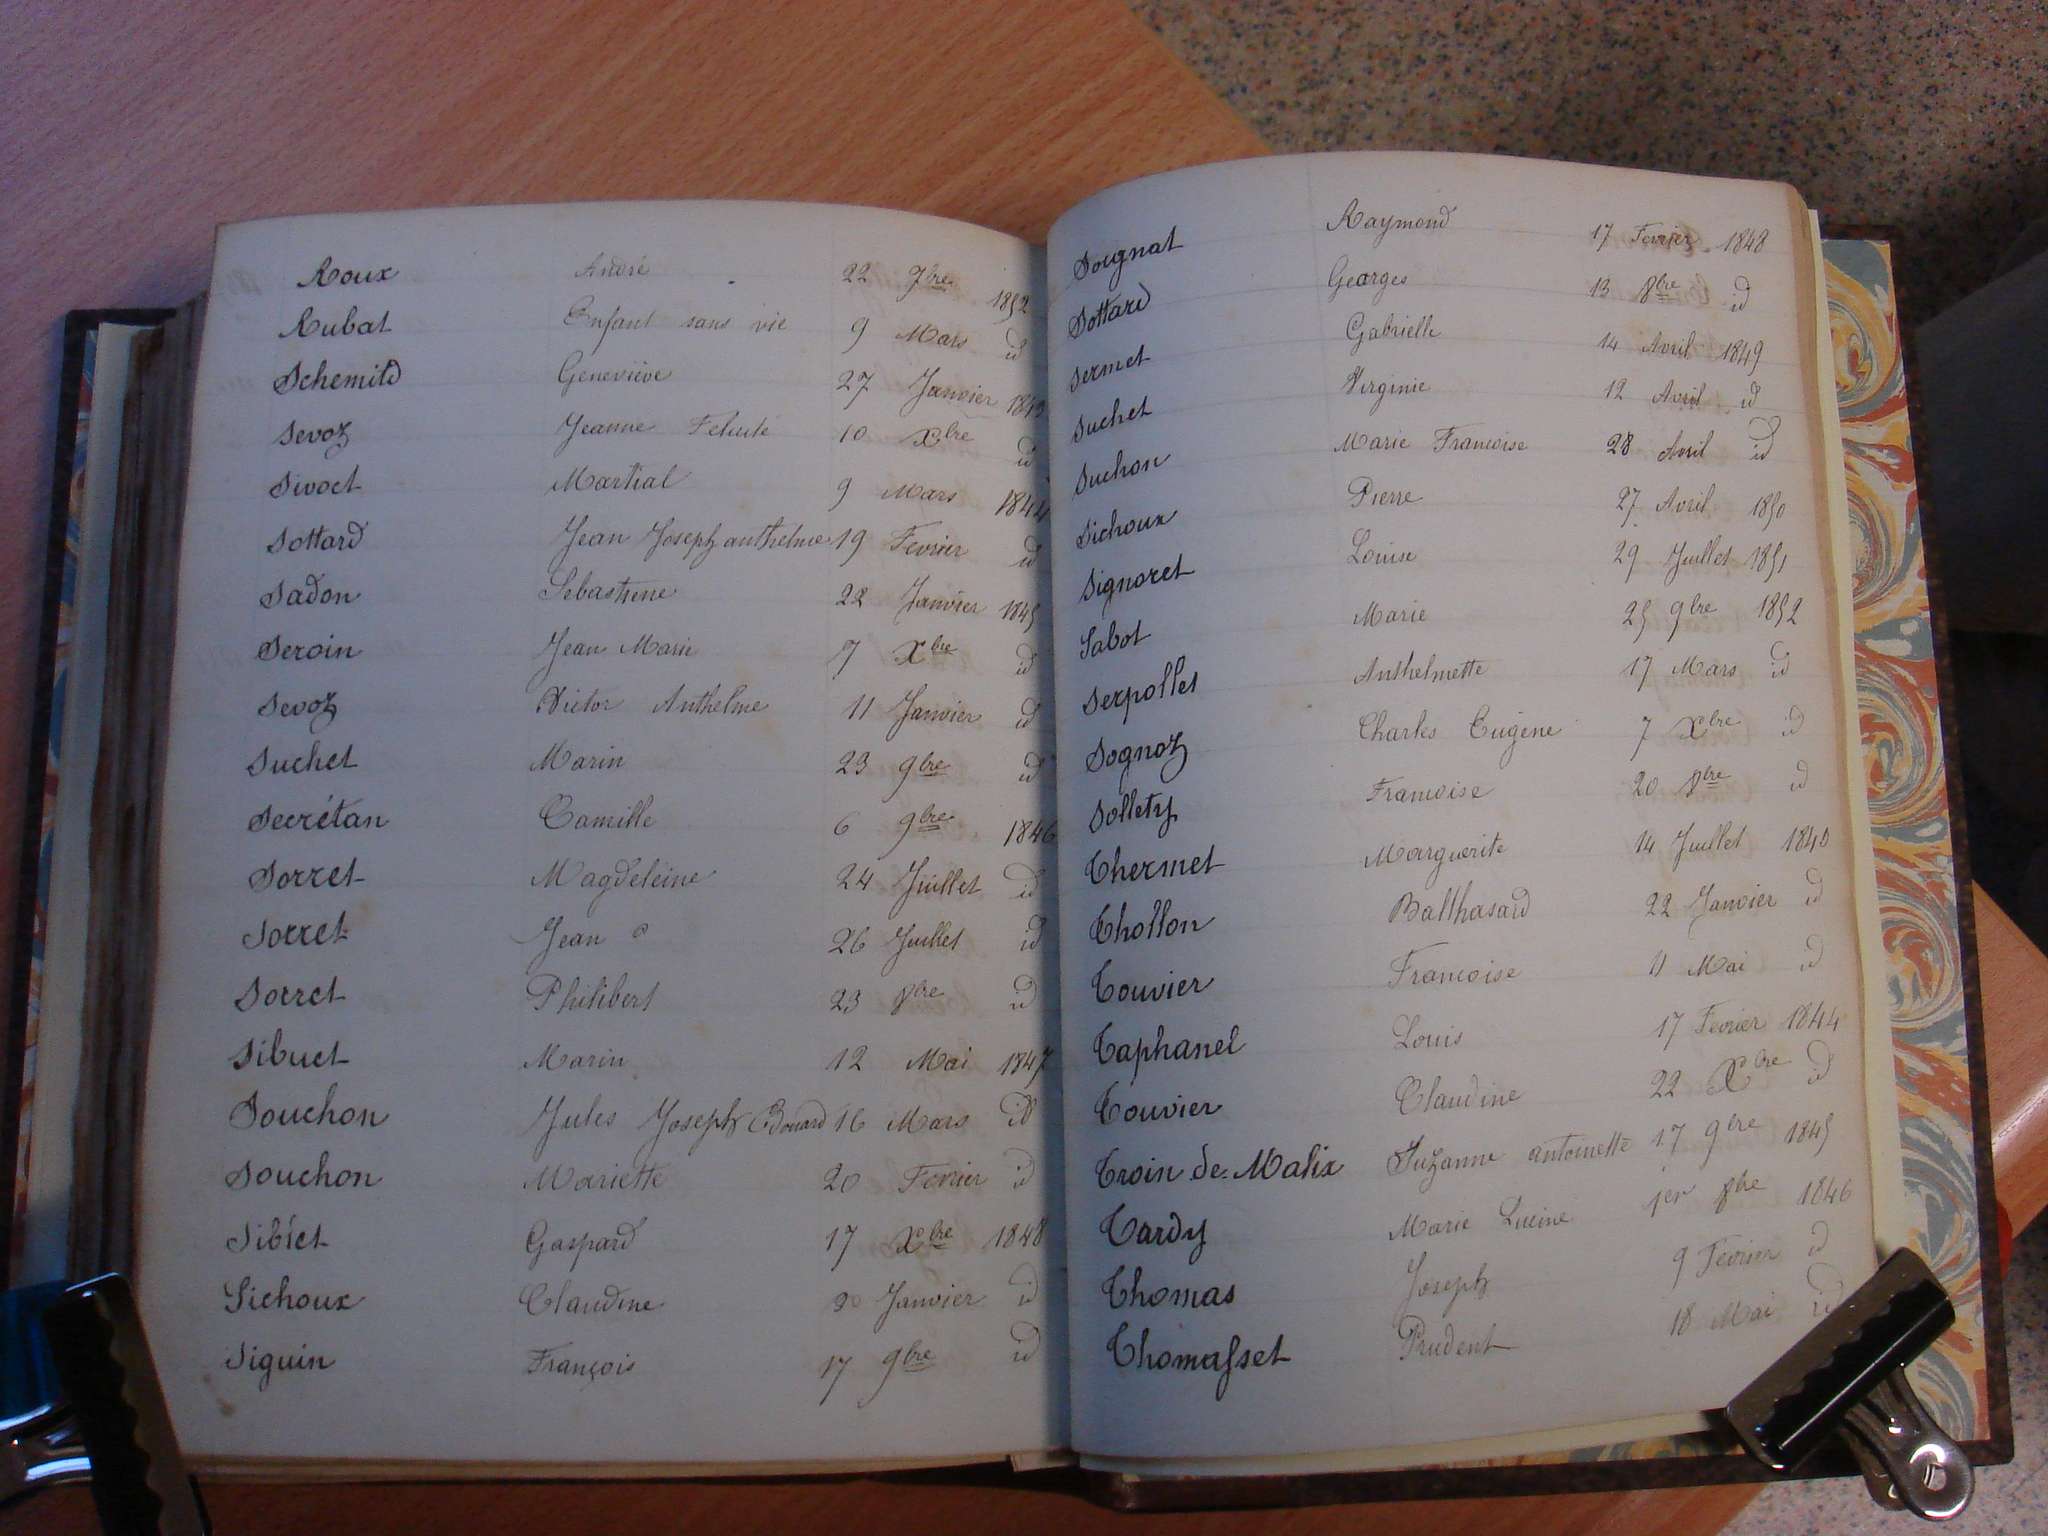 Roux André 22 7bre 1852
Rubat Enfant sans vie 9 Mars id
Schemild Geneviève 27 Janvier 1843
Sevoz Jeanne Felicité 10 Xbre id
Sivoct Martial 9 Mars 1844
Sottard Jean Joseph anthelme 19 Fevrier id
Sadon Sebastiene 22 Janvier 1845
Seroin Jean Marie 7 Xbre id
Sevoz Victor Anthelme 11 Janvier id
Suchet Marin 23 9bre id
Secrétan Camille 6 9bre 1846
Sorret Magdeleine 24 Juillet id
Sorret Jean 26 Juillet id
Sorret Philibert 23 8bre id
Sibuet Marin 12 Mai 1847
Souchon Jules Joseph Edouard 16 Mars id
Souchon Mariette 20 Fevrier id
Sibiet Gaspard 17 Xbre 1848
Sichoux Claudine Janvier id
Siguin François 17 9bre id
Soignat Raymond 17 Fevrier 1848
Sottard Georges 13 8bre id
Sermet Gabrielle 14 Avril 1849
Suchet Virginie 12 Avril id
Suchon Marie Francoise 28 Avril id
Sichoux Pierre 27 Avril 1850
Signoret Louise 29 Juillet 1851
Sabot Marie 25 9bre 1852
Serpollet Anthelmette 17 Mars id
Sognoz Charles Eugène 7 Xbre id
Sollety Francoise 20 8bre id
Thermet Marguerite 14 Juillet 1840
Thollon Balthasard 22 Janvier id
Touvier Francoise 11 Mai id
Taphanel Louis 17 Fevrier 1844
Touvier Claudine 22 Xbre id
Troin de Malix Suzanne antoinette 17 9bre 1845
Tardy Marie Lucine 1er 8bre 1846
Thomas Joseph 9 Fevrier id
Thomasset Prudent 18 Mai id